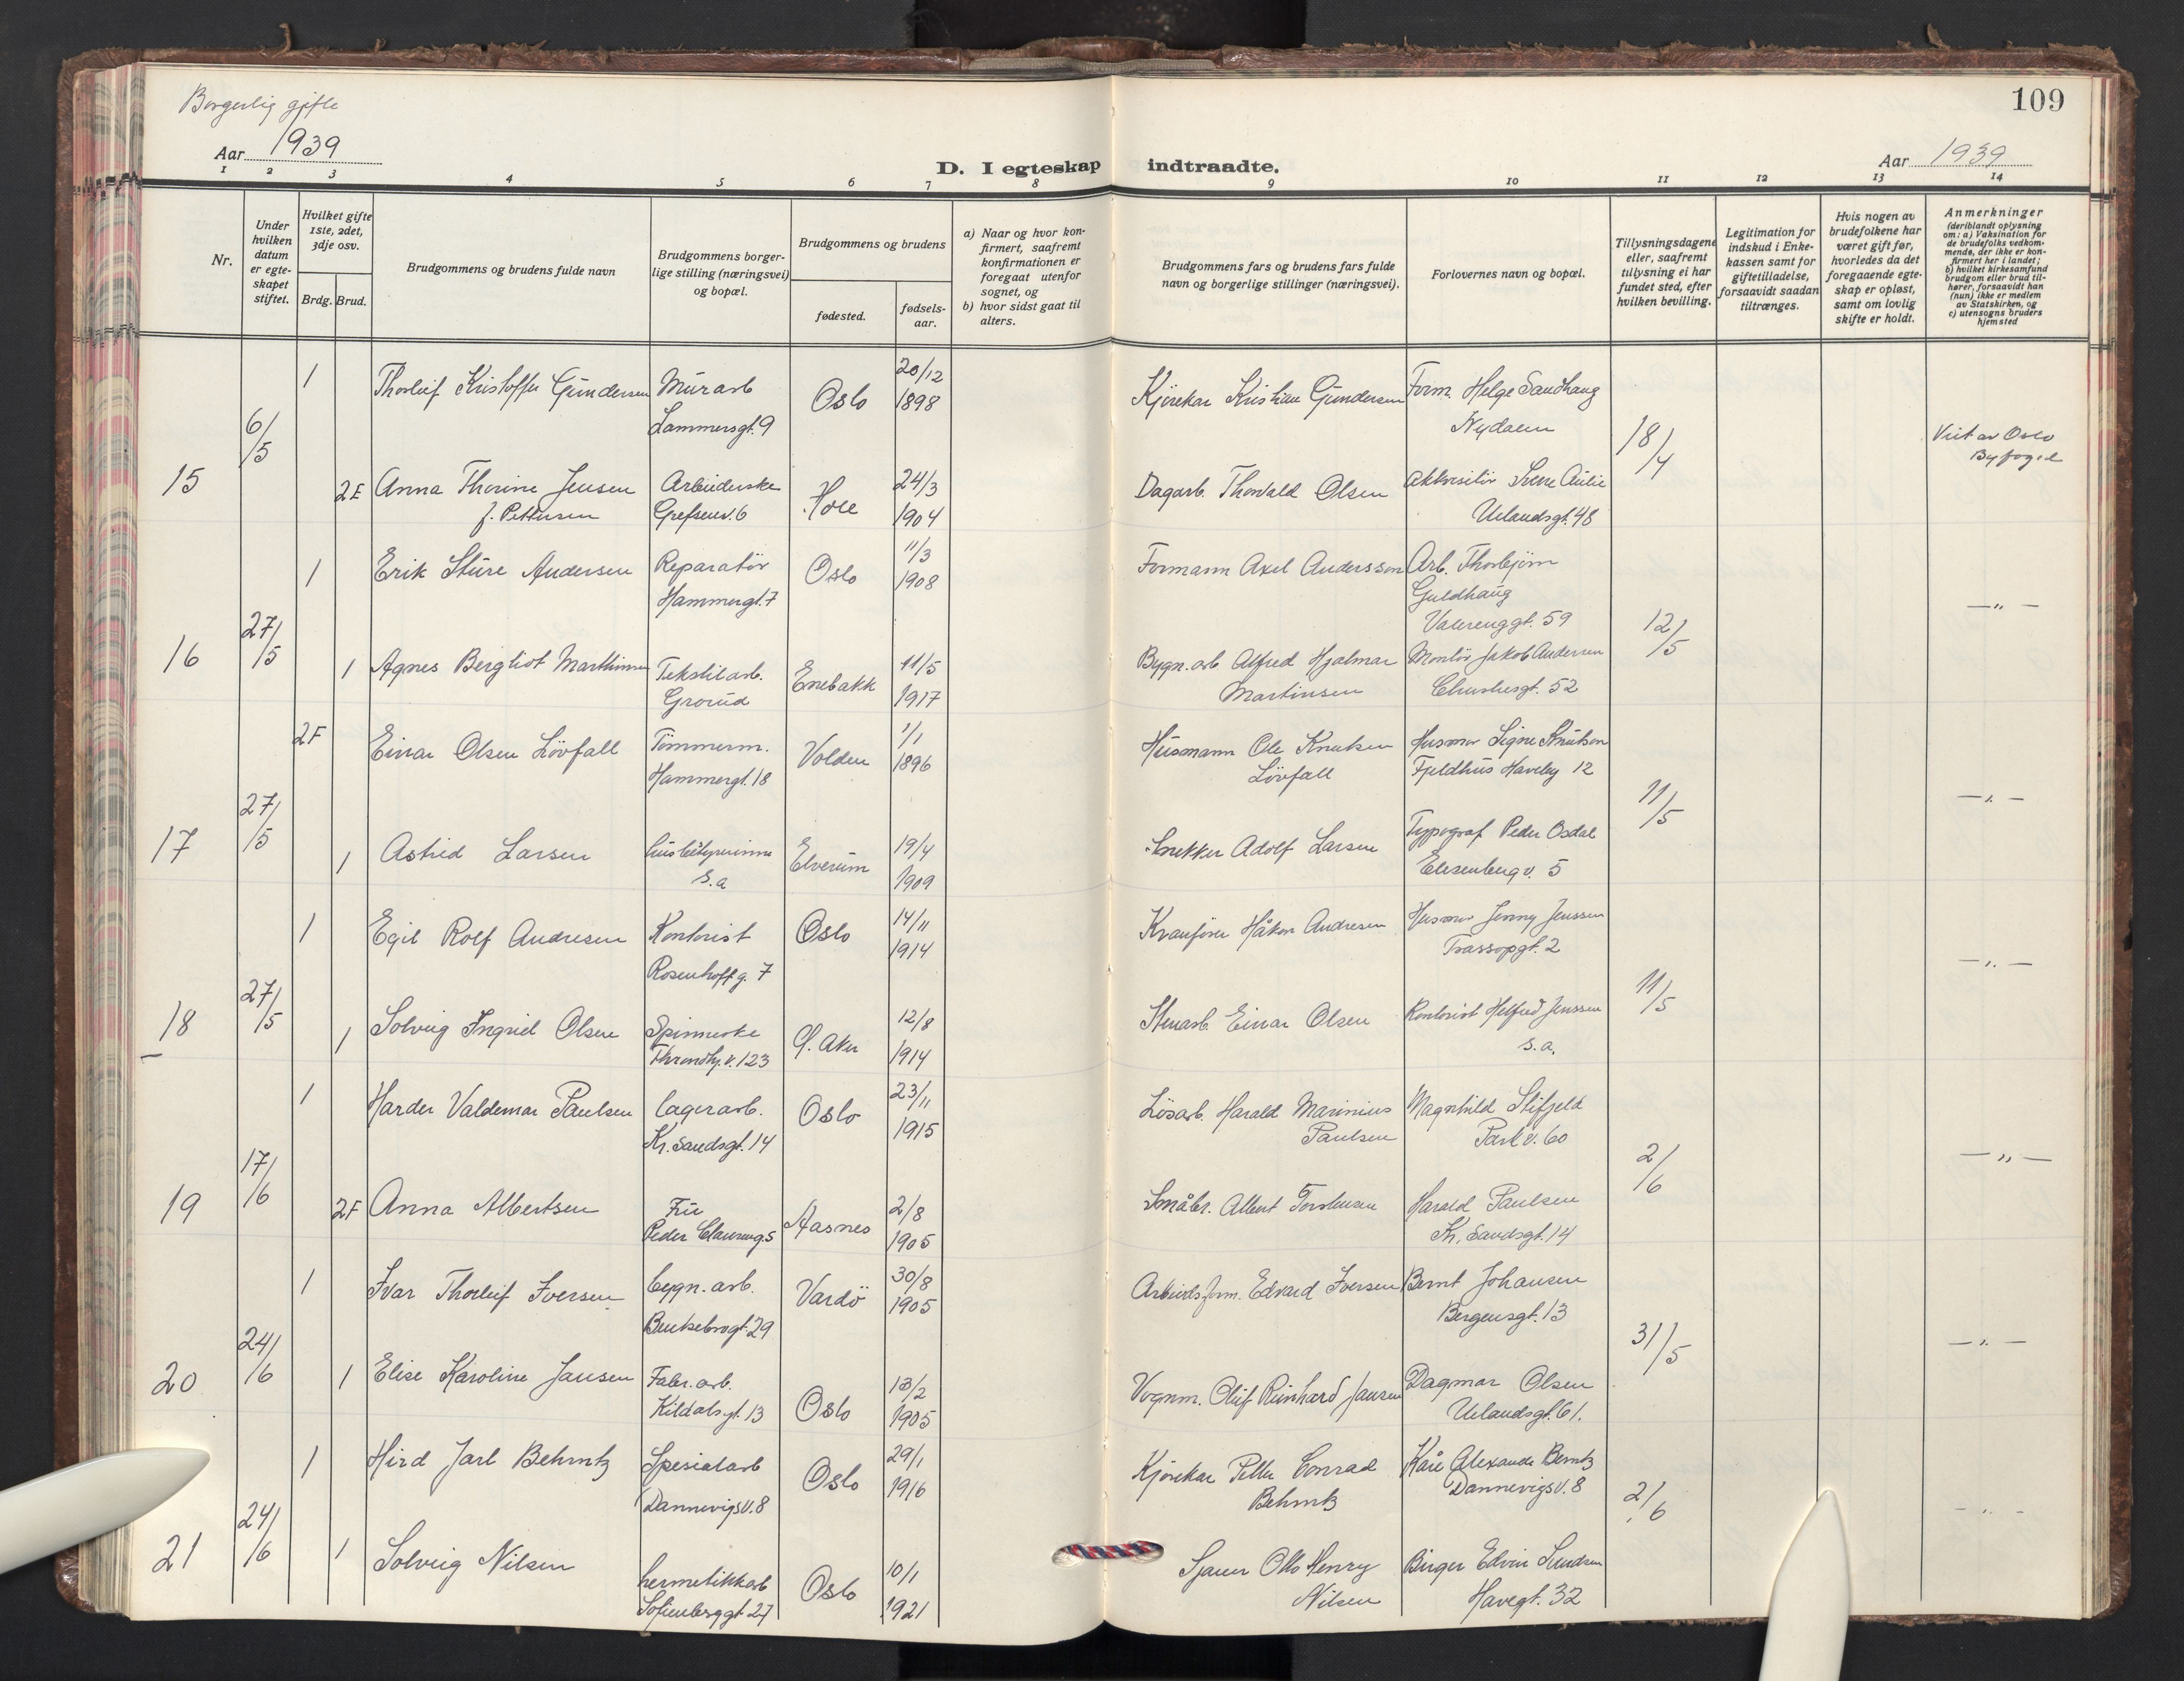 Borgerlig gifte
109
Aar 1939
D. I egteskap indtraadte.
Aar 1939
1 2 3 4 5 6 7 8 9 10 11 12 13 14
Nr.
Under hvilken datum er egteskapet stiftet.
Hvilket gifte 1ste, 2det, 3dje osv.
Brdg. Brud.
Brudgommens og brudens fulde navn
Brudgommens borgerlige stilling (næringsvei) og bopæl.
Brudgommens og brudens
fødested.
fødselsaar.
a) Naar og hvor konfirmert, saafremt konfirmationen er foregaat utenfor sognet, og
b) hvor sidst gaat til alters.
Brudgommens fars og brudens fars fulde navn og borgerlige stillinger (næringsvei).
Forlovernes navn og bopæl.
Tillysningsdagene eller, saafremt tillysning ei har fundet sted, efter hvilken bevilling.
Legitimation for indskud i Enkekassen samt for giftetilladelse, forsaavidt saadan tiltrænges.
Hvis nogen av brudefolkene har været gift før, hvorledes da det foregaaende egteskap er opløst, samt om lovlig skifte er holdt.
Anmerkninger (deriblandt oplysning om: a) Vaksination for de brudefolks vedkommende, der ikke er konfirmert her i landet; b) hvilket kirkesamfund brudgom eller brud tilhører, forsaavidt han (hun) ikke er medlem av Statskirken, og c) utensogns bruders hjemsted
1 Thorleif Kristoffer Gundersen Murarb Oslo 20/12 Kjørekar Kristian Gundersen Form. Helge Sandhaug
Lammersgt. 9 1898 Nydalen
6/5 18/4 Viet av Oslo Byfoged
15 2E Anna Thorine Jensen Arbeiderske Hole 24/3 Dagarb. Thorvald Olsen Akkvisitör Aulie
f. Pettersen Grefsenv. 6 1904 Uelandsgt. 48
1 Erik Sture Andersen Reparatör Oslo 11/3 Formann Axel Andersson Arb. Thorbjørn
Hammergt. 7 1908 Guldhaug
27/5 Valerenggt. 59 12/5 — " —
16 1 Agnes Bergliot Marthinsen Tekstilarb. Enebakk 11/5 Bygn. arb Alfred Hjalmar Montör Jakob Andersen
Grorud 1917 Martinsen 52
2F Einar Olsen Lövfall Tömmerm. Volden 1/1 Husmann Ole Knutsen Husmor Signe Knutson
Hammergt. 18 1896 Lövfall Fjeldhus Haveby 12
27/5 11/5 — " —
17 1 Astrid Larsen husbestyrerinne Elverum 19/4 Snekker Adolf Larsen Typograf Peder Osdal
s. a 1909 Elisenberg v. 5
1 Egil Rolf Andresen Kontorist Oslo 14/11 Kranfører Håkon Andresen Husmor Jenny Jenssen
Rosenhoffg. 7 1914 Trassopgt. 2
27/5 11/5 — " —
18 1 Solveig Ingrid Olsen Spinnerske Ø. Aker 12/8 Stenarb. Einar Olsen Kontorist Helfred Jenssen
Throndhj. v. 123 1914 s. a.
1 Harder Valdemar Paulsen lagerarb. Oslo 23/11 Lösarb. Harald Marinius Magnhild Stifjeld
Kr. sandsgt. 14 1915 Paulsen Park v. 60
17/6 2/6 — " —
19 2F Anna Albertsen Fru Aasnes 2/8 Småbr. Albert Harald Paulsen
Peder Claussøng. 5 1905 Kr. sandsgt. 14
1 Ivar Thorleif Iversen bygn. arb. Vardö 30/8 Arbeidsform. Edvard Iversen Bernt Johansen
Bentsebrogt. 29 1905 Bergensgt. 13
24/6 31/5 — " —
20 1 Elise Karoline Jansen Fabr. arb. Oslo 13/2 Vognm. Oluf Reinhard Jansen Dagmar Olsen
Kildalsgt. 13 1905 Uelandsgt. 61.
1 Hird Jarl Behrntz Spesialarb Oslo 29/1 Kjørekar Petter Conrad Kåre Alexander Berntz
Dannevigsv. 8 1916 Behrntz Dannevigsv. 8
24/6 2/6 — " —
21 1 Solveig Nilsen hermetikkarb Oslo 10/1 Sjauer Otto Henry Birger Edvin
Sofienberggt 27 1921 Nilsen Havegt. 32